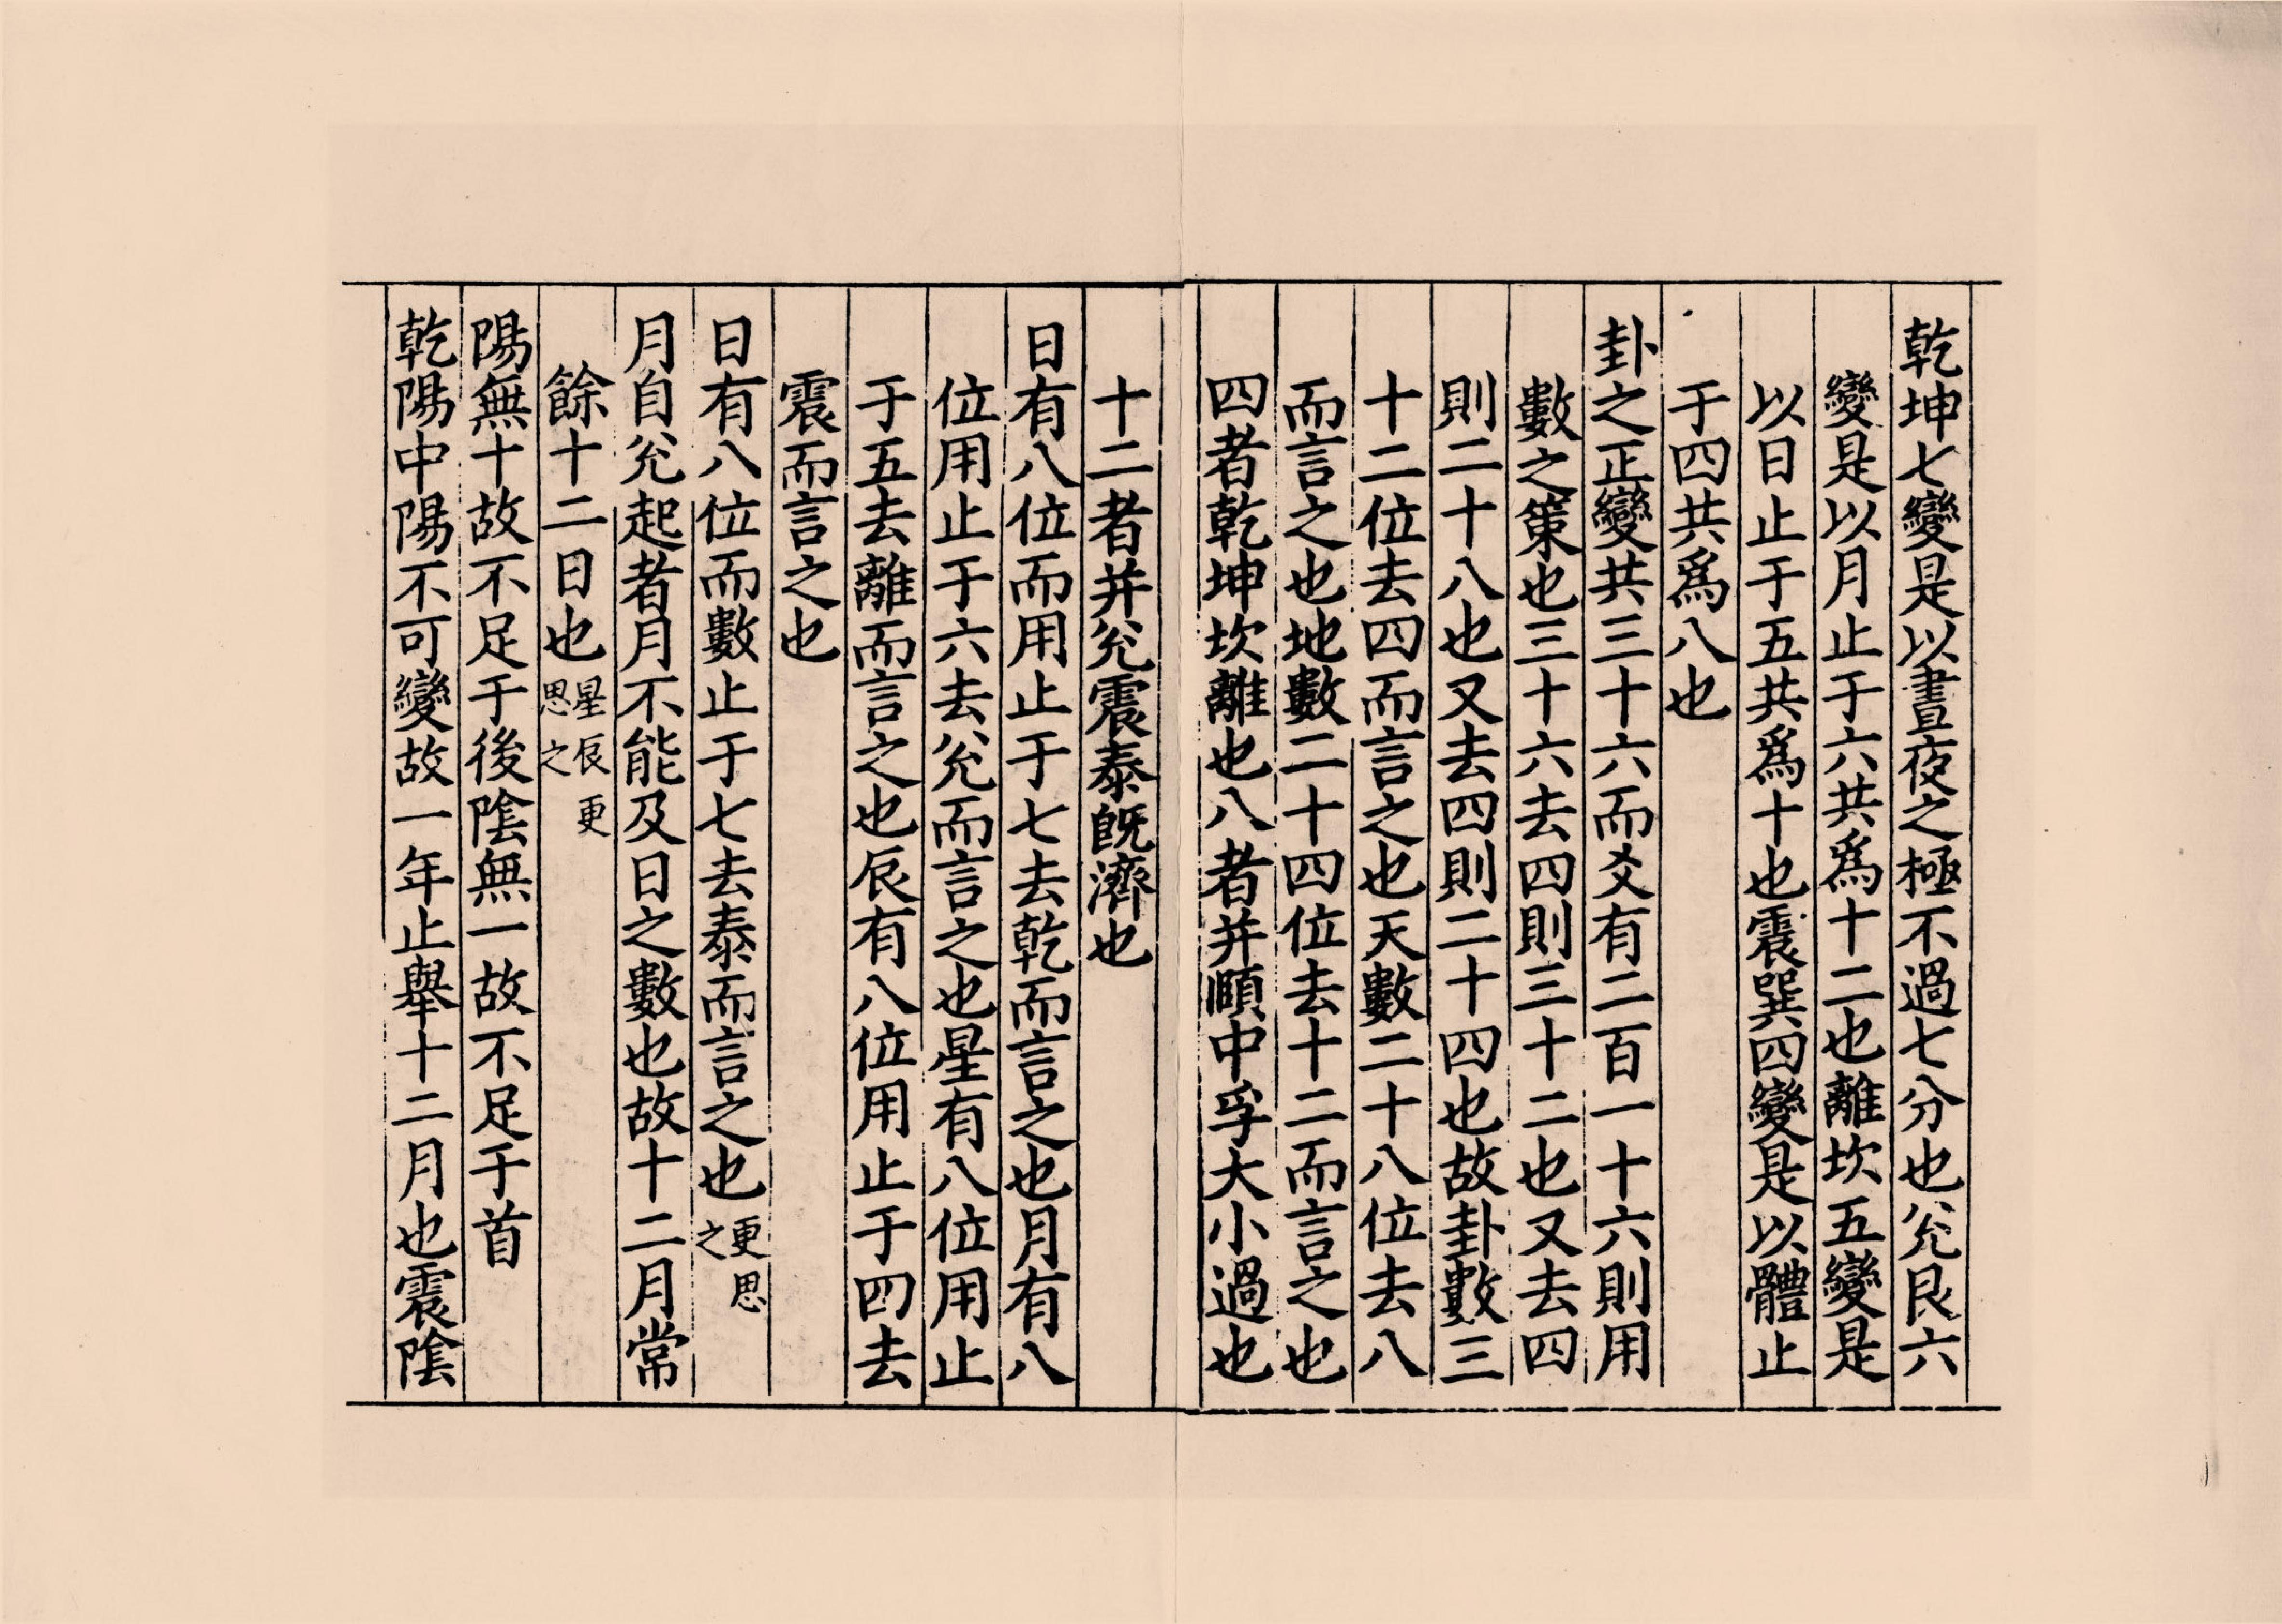 乾坤七變是以晝夜之極不過七分也兊艮六
變是以月止于六共爲十二也離坎五變是
以日止于五共爲十也震巽四變是以體止
于四共爲八也
卦之正變共三十六而爻有二百一十六則用
數之策也三十六去四則三十二也又去四
則二十八也又去四則二十四也故卦數三
十二位去四而言之也天數二十八位去八
而言之也地數二十四位去十二而言之也
四者乾坤坎離也八者并頤中孚大小過也
十二者并兊震泰既濟也
日有八位而用止于七去乾而言之也月有八
位用止于六去兊而言之也星有八位用止
于五去離而言之也辰有八位用止于四去
震而言之也
日有八位而數止于七去泰而言之也更思之
月自兊起者月不能及日之數也故十二月常
餘十二日也星辰更思之
陽無十故不足于後陰無一故不足于首
乾陽中陽不可變故一年止舉十二月也震陰